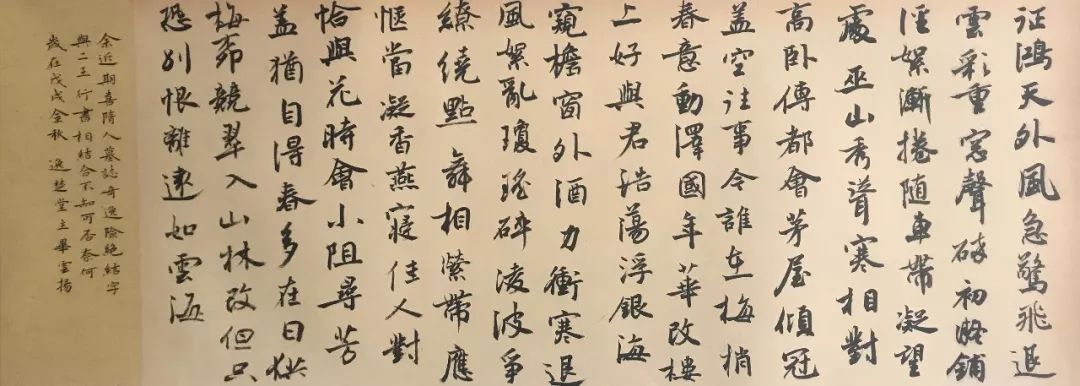 征鴻天外風急驚飛退
雲彩重窓聲破初略鋪
溼絮漸捲随車帶凝望
處巫山秀聳寒相對
高卧傳都會茅屋傾冠
盖空往事今誰在梅梢
春意動澤國年華改樓
上好與君浩蕩浮銀海
窺檐窗外酒力衝寒退
風絮亂瓊瑤碎凌波爭
繚繞點舞相縈帶應
愜當凝香燕寢佳人對
恰與花時會小阻尋芳
盖猶自得春多在日烘
梅萼競翠入山林改但只
恐别恨難遠如雲海
余近期喜隋人墓誌奇逸險絶結字
與二王行書相結合不知可否奈何
歲在戊戌金秋 逸楚堂主畢雲揚